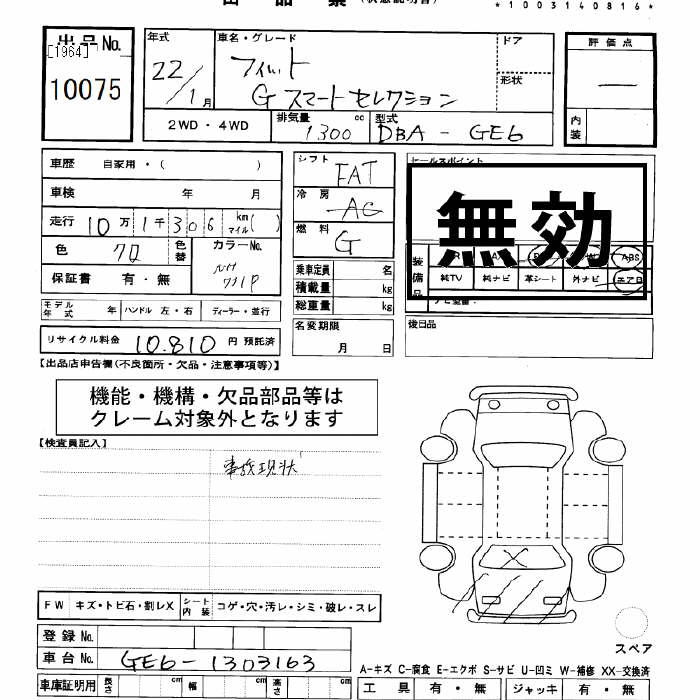 *1003140816*
出品No.
[1964]
10075
年式 22/1月
車名・グレード フィット
G スマートセレクション
ドア
形状
評価点 —
内装
2WD・4WD
排気量 1300 cc
型式 DBA-GE6
車歴 自家用・( )
車検 年 月
走行 10万1千306 km マイル( )
色 クロ
色替
カラーNo. NH731P
保証書 有・無
モデル年式 年
ハンドル 左・右
ディーラー・並行
リサイクル料金 10.810 円 預託済
シフト FAT
冷房 AC
燃料 G
乗車定員 名
積載量 kg
総重量 kg
名変期限
月 日
セールスポイント
無効
装備品
ABS
純TV 純ナビ 革シート 外ナビ エアB
後日品
【出品店申告欄(不良箇所・欠品・注意事項等)】
機能・機構・欠品部品等は
クレーム対象外となります
【検査員記入】
事故現状
FW キズ・トビ石・割レX
シート内装 コゲ・穴・汚レ・シミ・破レ・スレ
登録No.
車台No. GE6-1303163
車庫証明用 長さ cm 幅 cm 高さ cm
スペア
A-キズ C-腐食 E-エクボ S-サビ U-凹ミ W-補修 XX-交換済
工具 有・無 ジャッキ 有・無